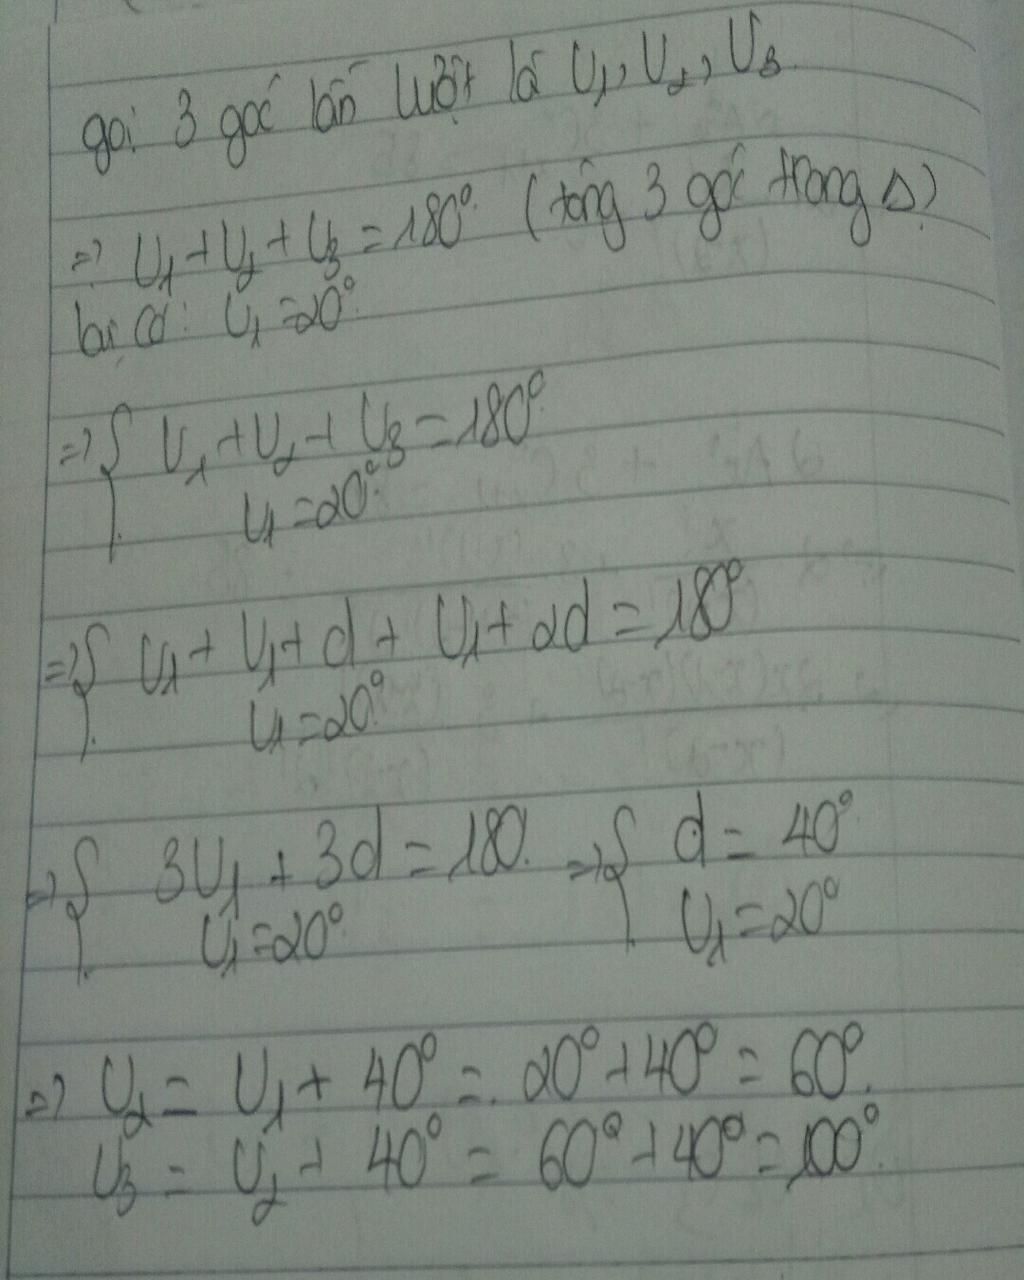 gọi 3 góc lần lượt là U₁, U₂, U₃
=> U₁ + U₂ + U₃ = 180° (tổng 3 góc trong Δ)
lại có: U₁ = 20°
=> { U₁ + U₂ + U₃ = 180°
U₁ = 20°
=> { U₁ + U₁ + d + U₁ + 2d = 180°
U₁ = 20°
=> { 3U₁ + 3d = 180 => { d = 40°
U₁ = 20° U₁ = 20°
=> U₂ = U₁ + 40° = 20° + 40° = 60°
U₃ = U₂ + 40° = 60° + 40° = 100°